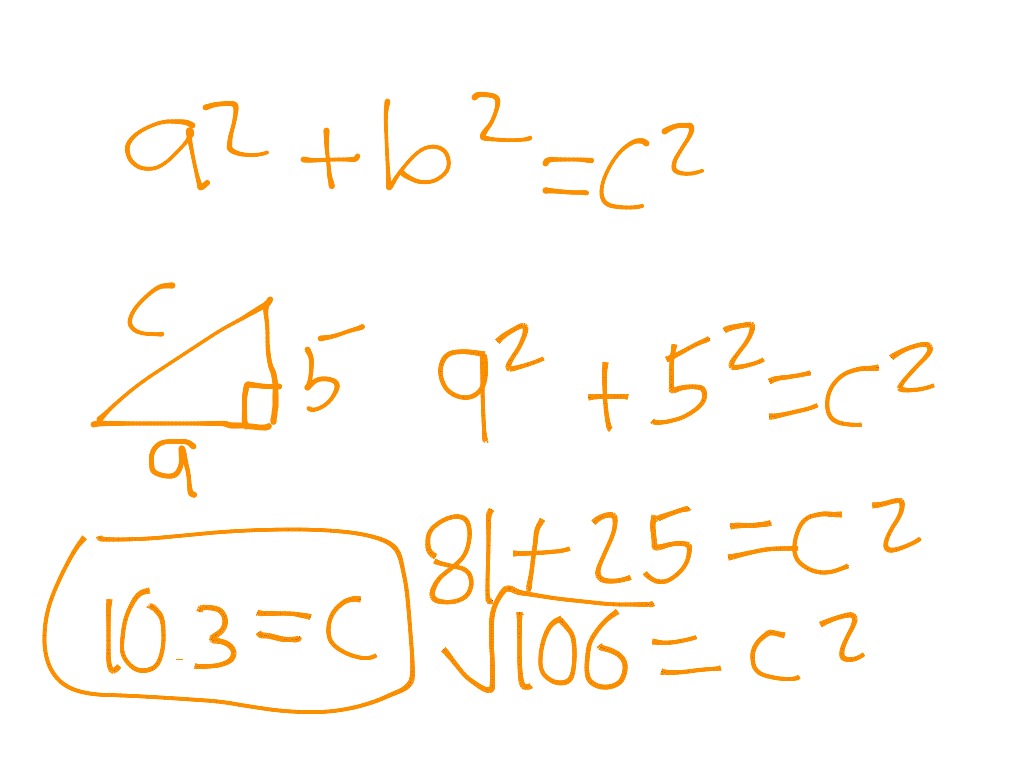 a² + b² = c²
c
5
9
9² + 5² = c²
81 + 25 = c²
√106 = c²
10.3 = c